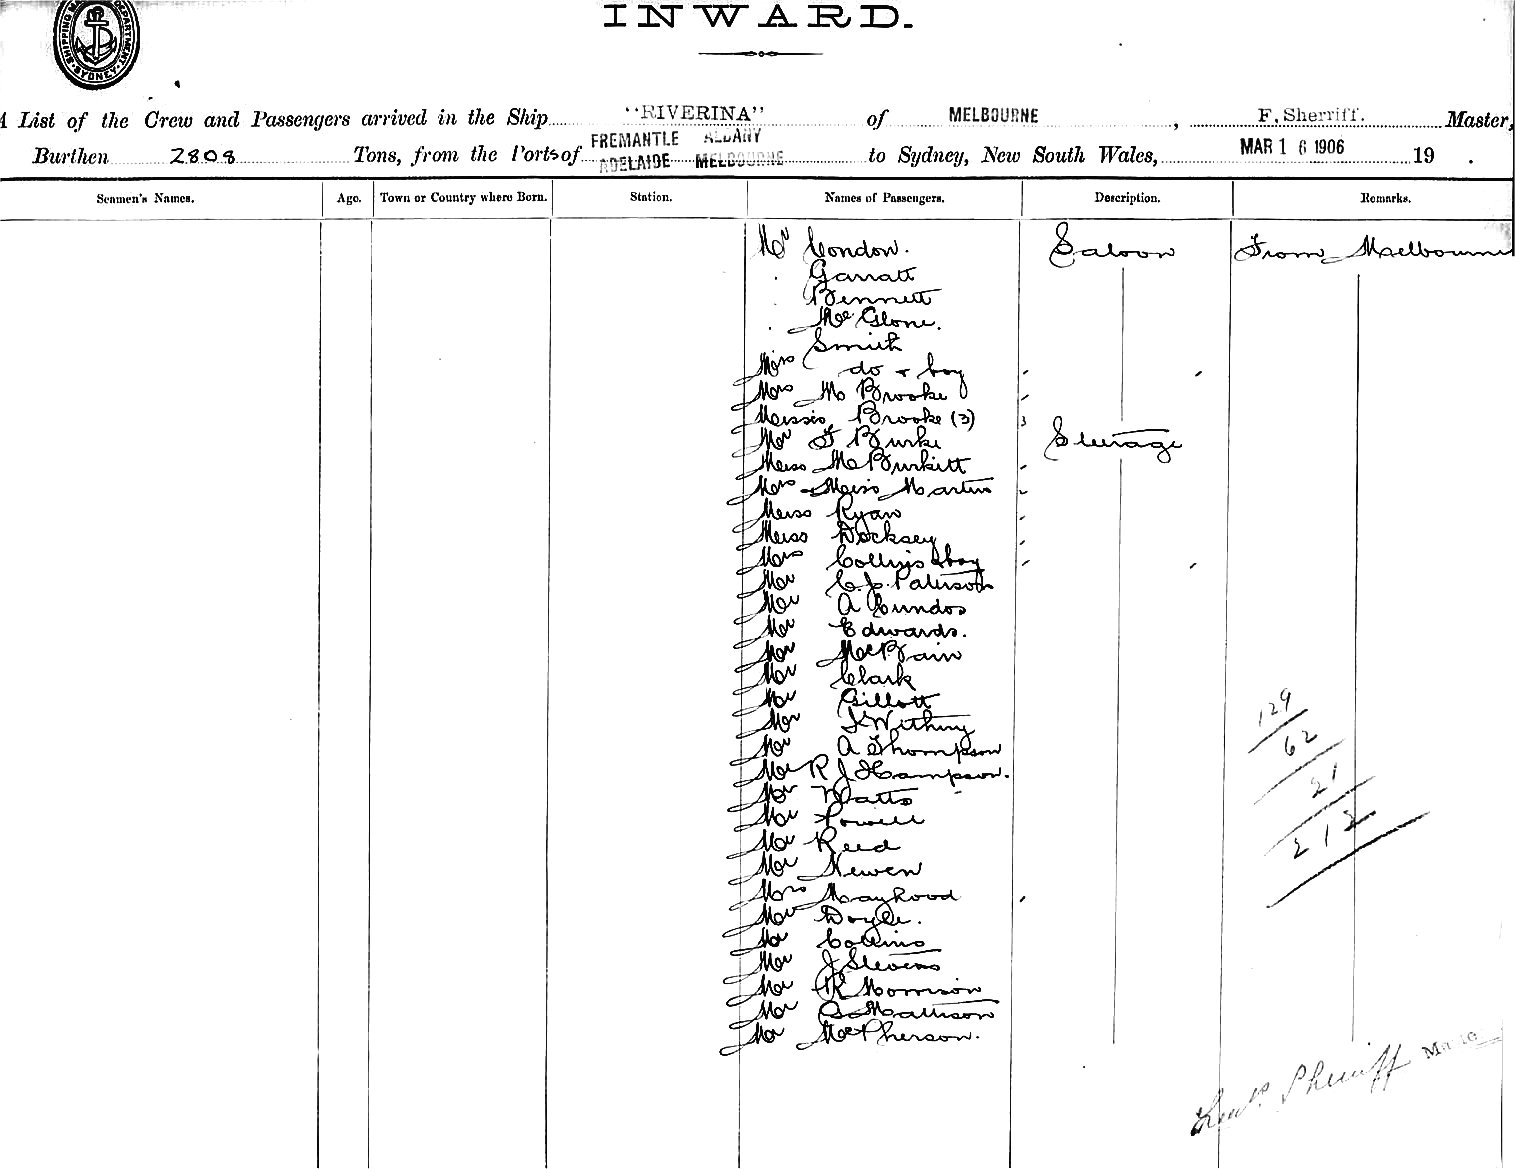 SHIPPING MASTER'S DEPARTMENT SYDNEY
INWARD.
A List of the Crew and Passengers arrived in the Ship "RIVERINA" of MELBOURNE , F. Sherriff. Master,
FREMANTLE ALBANY
Burthen 2808 Tons, from the Ports of ADELAIDE MELBOURNE to Sydney, New South Wales, MAR 16 1906 19 .
Seamen's Names. Age. Town or Country where Born. Station. Names of Passengers. Description. Remarks.
Mr Condon. Saloon From Melbourne
Garratt
Bennett
McGlone.
Smith
Mrs do & boy
Mrs M Brooke
Misses Brooke (3) 3
Mr F Burke Steerage
Miss M Burkitt
Mrs & Miss Martin
Miss Ryan
Miss Docksey
Mrs Collins & boy
Mr C.J. Paterson
Mr A Cundos
Mr Edwards.
Mr McBain
Mr Clark
Mr Gillott
Mr J Withing
Mr A Thompson
Mr R J Hampson.
Mr Watts
Mr Powell
Mr Reed
Mr Newen
Mrs Mayhood
Mr Doyle.
Mr Collins
Mr J Stevens
Mr R Morrison
Mr Mattison
Mr McPherson.
129
62
21
212
Sherriff